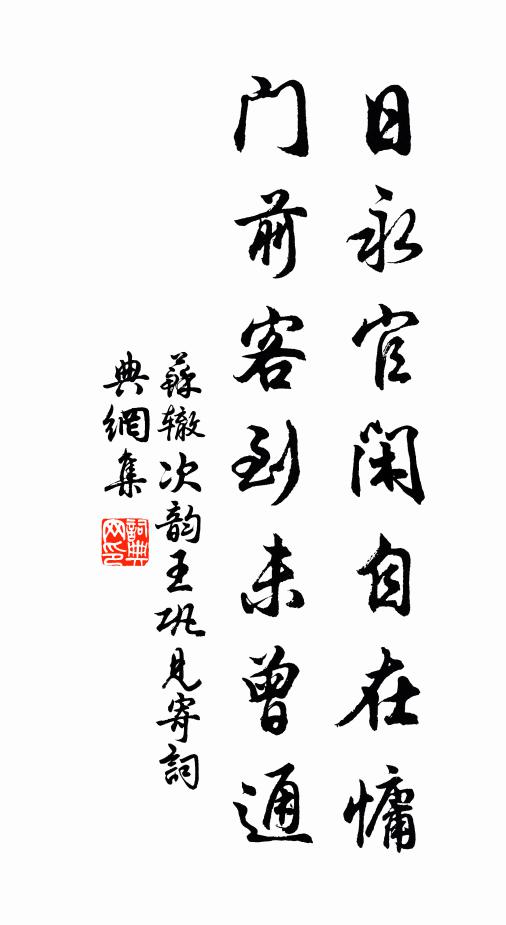 日永官闲自在慵
门前客到未曾通
蘇辙次韵王巩見寄詞
典網集
詞典网印